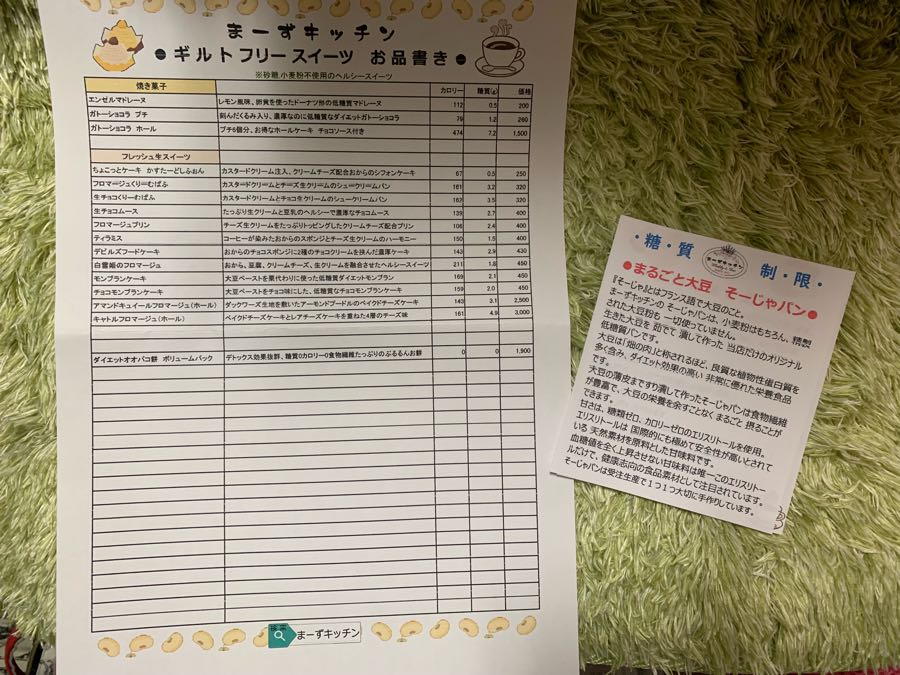 まーずキッチン
●ギルトフリースイーツ お品書き●
※砂糖,小麦粉不使用のヘルシースイーツ
焼き菓子 カロリー 糖質(g) 価格
エンゼルマドレーヌ レモン風味、卵黄を使ったドーナツ形の低糖質マドレーヌ 112 0.5 200
ガトーショコラ プチ 刻んだくるみ入り、濃厚なのに低糖質なダイエットガトーショコラ 79 1.2 260
ガトーショコラ ホール プチ6個分、お得なホールケーキ チョコソース付き 474 7.2 1,500
フレッシュ生スイーツ
ちょこっとケーキ かすたーどしふぉん カスタードクリーム注入、クリームチーズ配合おからのシフォンケーキ 67 0.5 250
フロマージュくりーむぱふ カスタードクリームとチーズ生クリームのシュークリームパン 161 3.2 320
生チョコくりーむぱふ カスタードクリームとチョコ生クリームのシュークリームパン 162 3.5 320
生チョコムース たっぷり生クリームと豆乳のヘルシーで濃厚なチョコムース 139 2.7 400
フロマージュプリン チーズ生クリームをたっぷりトッピングしたクリームチーズ配合プリン 106 2.4 400
ティラミス コーヒーが染みたおからのスポンジとチーズ生クリームのハーモニー 150 1.5 400
デビルズフードケーキ おからのチョコスポンジに2種のチョコクリームを挟んだ濃厚ケーキ 143 2.9 430
白雪姫のフロマージュ おから、豆腐、クリームチーズ、生クリームを融合させたヘルシースイーツ 211 1.8 450
モンブランケーキ 大豆ペーストを栗代わりに使った低糖質ダイエットモンブラン 169 2.1 450
チョコモンブランケーキ 大豆ペーストをチョコ味にした、低糖質なチョコモンブラン 159 2.0 450
アマンドキュイールフロマージュ(ホール) ダックワーズ生地を敷いたアーモンドプードルのベイクドチーズケーキ 143 3.1 2,500
キャトルフロマージュ(ホール) ベイクドチーズケーキとレアチーズケーキを重ねた4層のチーズ味 161 4.9 3,000
ダイエットオオバコ餅 ボリュームパック デトックス効果抜群、糖質0カロリー0食物繊維たっぷりのぷるるんお餅 0 0 1,900
検索 まーずキッチン
・糖・質 まーずキッチン 制・限・
●まるごと大豆 そーじゃパン●
『そーじゃ』とはフランス語で大豆のこと。
まーずキッチンの そーじゃパンは、小麦粉はもちろん、精製
された大豆粉も 一切使っていません。
生きた大豆を 茹でて 潰して作った 当店だけのオリジナル
低糖質パンです。
大豆は「畑の肉」と称されるほど、良質な植物性蛋白質を
多く含み、ダイエット効果の高い 非常に優れた栄養食品
です。
大豆の薄皮まですり潰して作ったそーじゃパンは食物繊維
が豊富で、大豆の栄養を余すことなく まるごと 摂ることが
できます。
甘さは、糖類ゼロ、カロリーゼロのエリスリトールを使用。
エリスリトールは 国際的にも極めて安全性が高いとされて
いる 天然素材を原料とした甘味料です。
血糖値を全く上昇させない甘味料は唯一このエリスリトー
ルだけで、健康志向の食品素材として注目されています。
そーじゃパンは受注生産で1つ1つ大切に手作りしています。